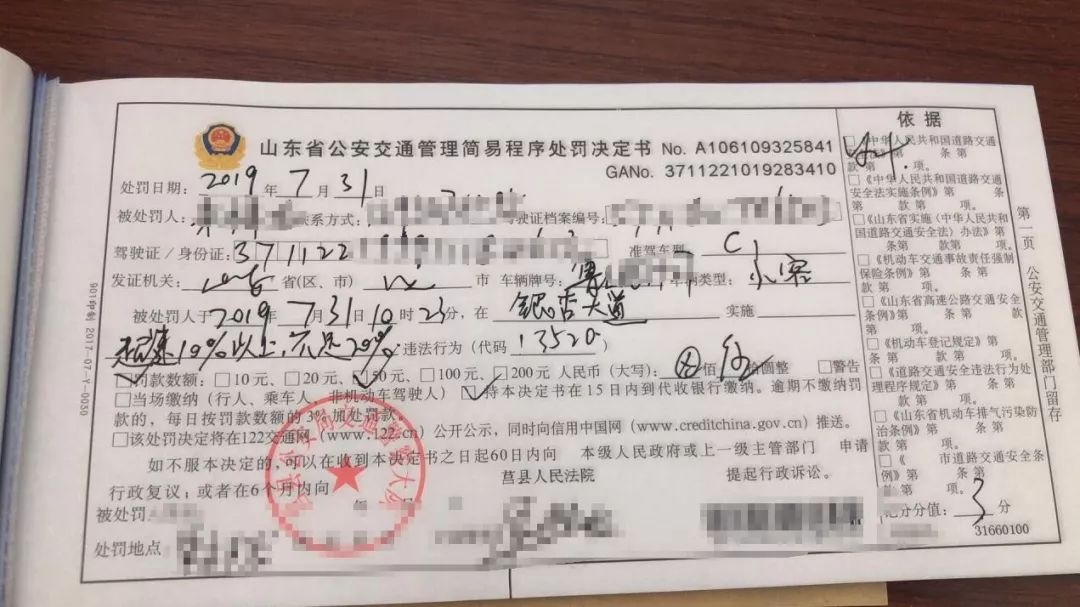 山东省公安交通管理简易程序处罚决定书 No. A106109325841
GANo. 3711221019283410
处罚日期: 2019 年 7 月 31 日
被处罚人: 联系方式: 驾驶证档案编号:
驾驶证/身份证: 371122 准驾车型 C1
发证机关: 山东 省(区、市) 市 车辆牌号: 鲁 车辆类型: 小客
被处罚人于 2019 年 7 月 31 日 10 时 23 分, 在 银杏大道 实施
超速10%以上, 不足20% 违法行为 (代码) 13520
罚款数额: □10元、□20元、☑50元、□100元、□200元 人民币 (大写): 佰 伍 拾圆整 □警告
□当场缴纳 (行人、乘车人、非机动车驾驶人) ☑持本决定书在15日内到代收银行缴纳。逾期不缴纳罚
款的, 每日按罚款数额的3%加处罚款。
□该处罚决定将在122交通网 (www.122.cn) 公开公示, 同时向信用中国网 (www.creditchina.gov.cn) 推送。
如不服本决定的, 可以在收到本决定书之日起60日内向 本级人民政府或上一级主管部门 申请
行政复议; 或者在6个月内向 莒县人民法院 提起行政诉讼。
被处罚
处罚地点
依据
□《中华人民共和国道路交通
安全法》第 条第
款第 项。
□《中华人民共和国道路交通
安全法实施条例》第 条
第 款第 项。
□《山东省实施〈中华人民共和
国道路交通安全法〉办法》第
条第 款第 项。
□《机动车交通事故责任强制
保险条例》第 条第
款第 项。
□《山东省高速公路交通安全
条例》第 条第 款
第 项。
□《机动车登记规定》第
条第 款第 项。
□《道路交通安全违法行为处
理程序规定》第 条第
款第 项。
□《山东省机动车排气污染防
治条例》第 条第
款第 项。
□《 市道路交通安全条
例》第 条第
款第 项。
记分分值: 3 分
31660100
第一页 公安交通管理部门留存
901印制 2017-07-Y-0030